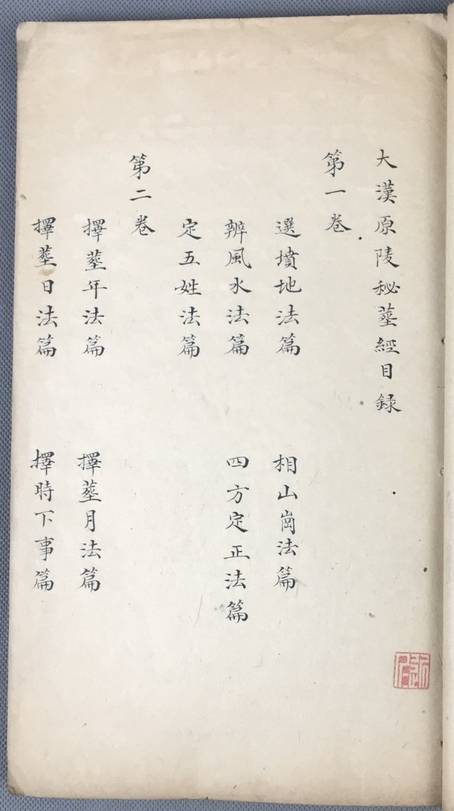 大漢原陵秘塟經目録
第一卷
選墳地法篇 相山崗法篇
辨風水法篇 四方定正法篇
定五姓法篇
第二卷
擇塟年法篇 擇塟月法篇
擇塟日法篇 擇時下事篇